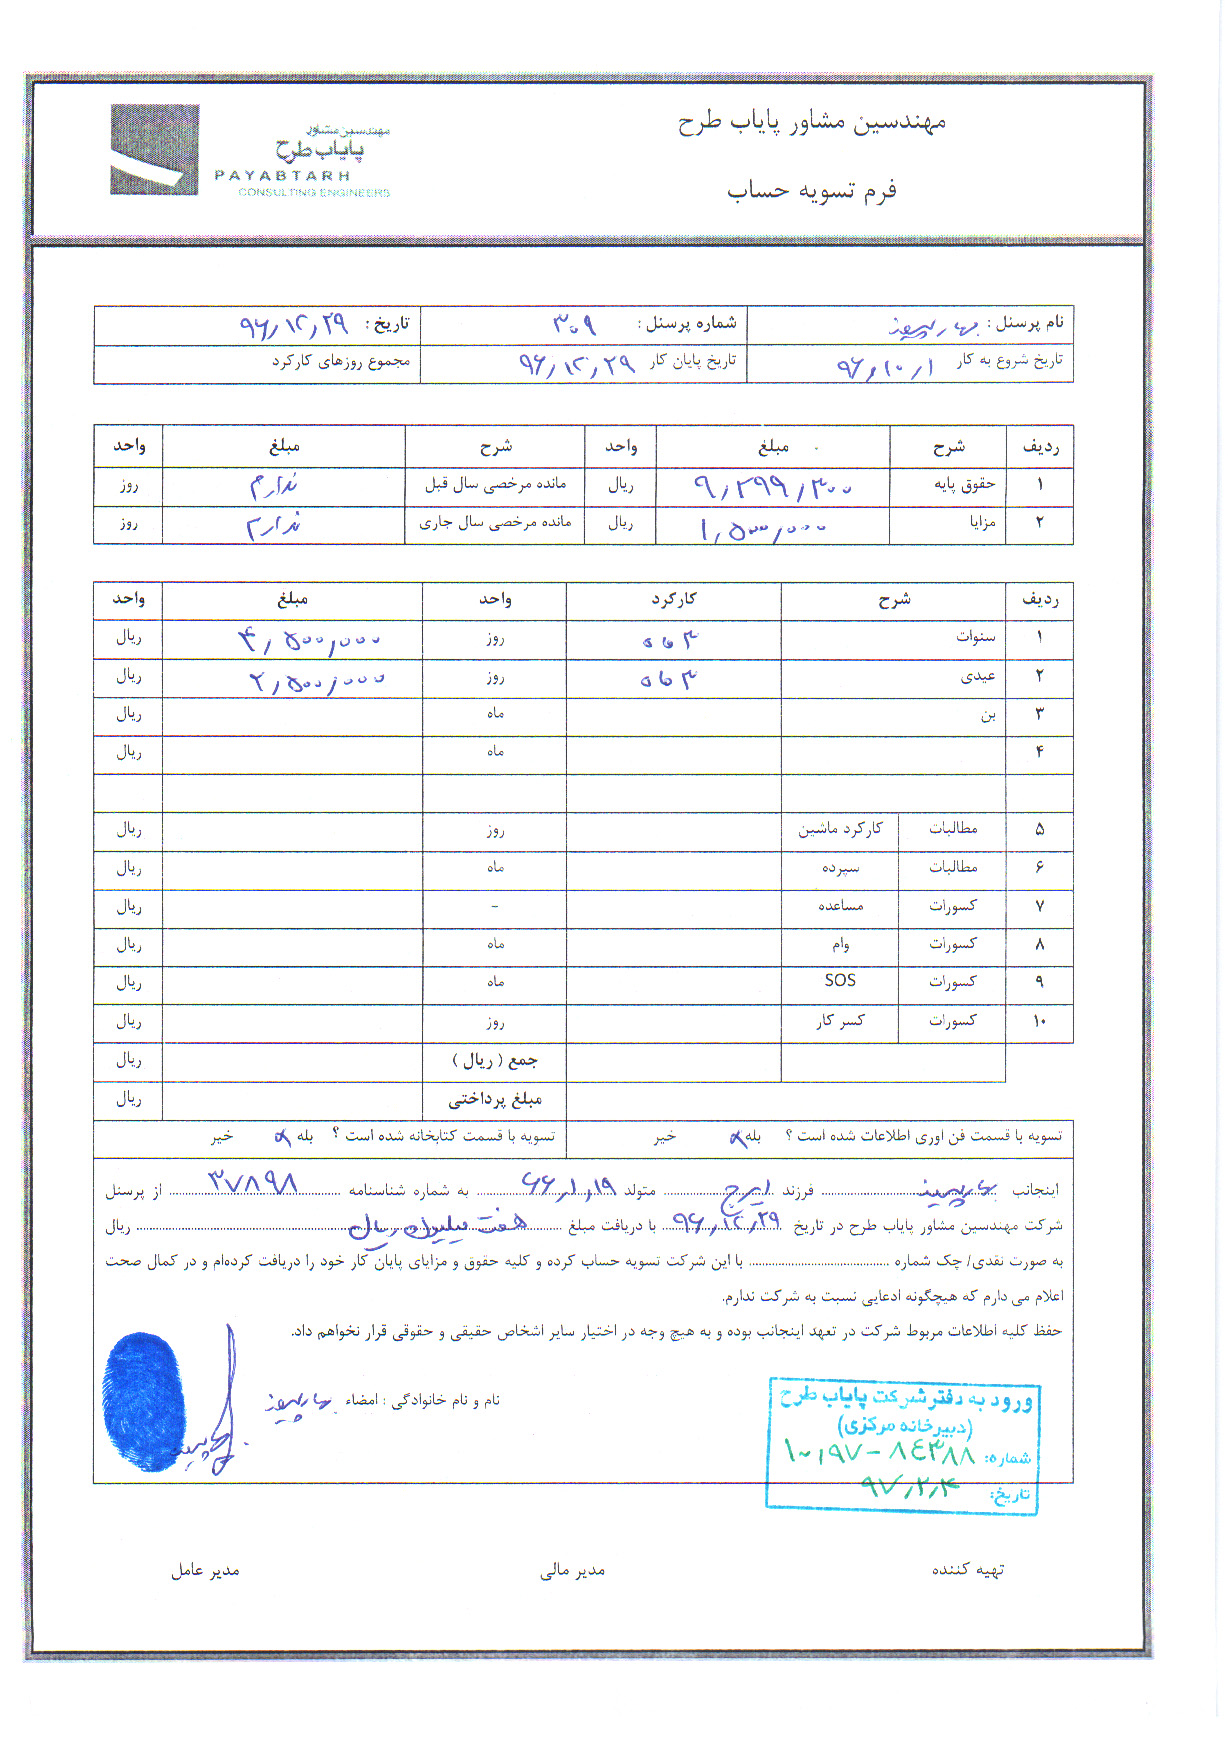 مهندسین مشاور پایاب طرح
فرم تسویه حساب
مهندسین مشاور
پایاب طرح
PAYABTARH
CONSULTING ENGINEERS
نام پرسنل : شماره پرسنل : ۳۰۹ تاریخ : ۹۶,۱۲,۲۹
تاریخ شروع به کار ۹۶,۱۰,۱ تاریخ پایان کار ۹۶,۱۲,۲۹ مجموع روزهای کارکرد
ردیف شرح مبلغ واحد شرح مبلغ واحد
۱ حقوق پایه ۹,۲۹۹,۳۰۰ ریال مانده مرخصی سال قبل ندارم روز
۲ مزایا ۱,۵۰۰,۰۰۰ ریال مانده مرخصی سال جاری ندارم روز
ردیف شرح کارکرد واحد مبلغ واحد
۱ سنوات روز ۴,۵۰۰,۰۰۰ ریال
۲ عیدی روز ۲,۵۰۰,۰۰۰ ریال
۳ بن ماه ریال
۴ ماه ریال
۵ مطالبات کارکرد ماشین روز ریال
۶ مطالبات سپرده ماه ریال
۷ کسورات مساعده - ریال
۸ کسورات وام ماه ریال
۹ کسورات SOS ماه ریال
۱۰ کسورات کسر کار روز ریال
جمع ( ریال ) ریال
مبلغ پرداختی ریال
تسویه با قسمت فن اوری اطلاعات شده است ؟ بله خیر تسویه با قسمت کتابخانه شده است ؟ بله خیر
اینجانب فرزند ایرج متولد ۶۶,۱,۱۹ به شماره شناسنامه ۳۷۸۹۸ از پرسنل
شرکت مهندسین مشاور پایاب طرح در تاریخ ۹۶,۱۲,۲۹ با دریافت مبلغ هفت میلیون ریال ریال
به صورت نقدی/ چک شماره با این شرکت تسویه حساب کرده و کلیه حقوق و مزایای پایان کار خود را دریافت کرده‌ام و در کمال صحت
اعلام می دارم که هیچگونه ادعایی نسبت به شرکت ندارم.
حفظ کلیه اطلاعات مربوط شرکت در تعهد اینجانب بوده و به هیچ وجه در اختیار سایر اشخاص حقیقی و حقوقی قرار نخواهم داد.
نام و نام خانوادگی : امضاء
ورود به دفتر شرکت پایاب طرح
(دبیرخانه مرکزی)
شماره: ۱۰,۹۷-۸۴۳۸۸
تاریخ: ۹۷,۲,۴
تهیه کننده مدیر مالی مدیر عامل